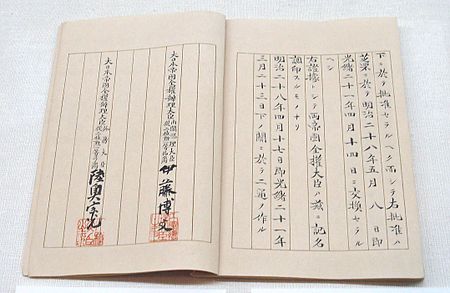 下ニ於テ批准セラルヘク而シテ右批准ハ
芝罘ニ於テ明治二十八年五月八日即
光緒二十一年四月十四日ニ交換セラル
ヘシ
右證據トシテ兩帝國全權大臣ハ茲ニ記名
調印スルモノナリ
明治二十八年四月十七日即光緒二十一年
三月二十三日下ノ關ニ於テ二通ヲ作ル
大日本帝國全權辨理大臣內閣總理大臣伊藤博文
大日本帝國全權辨理大臣外務大臣陸奥宗光